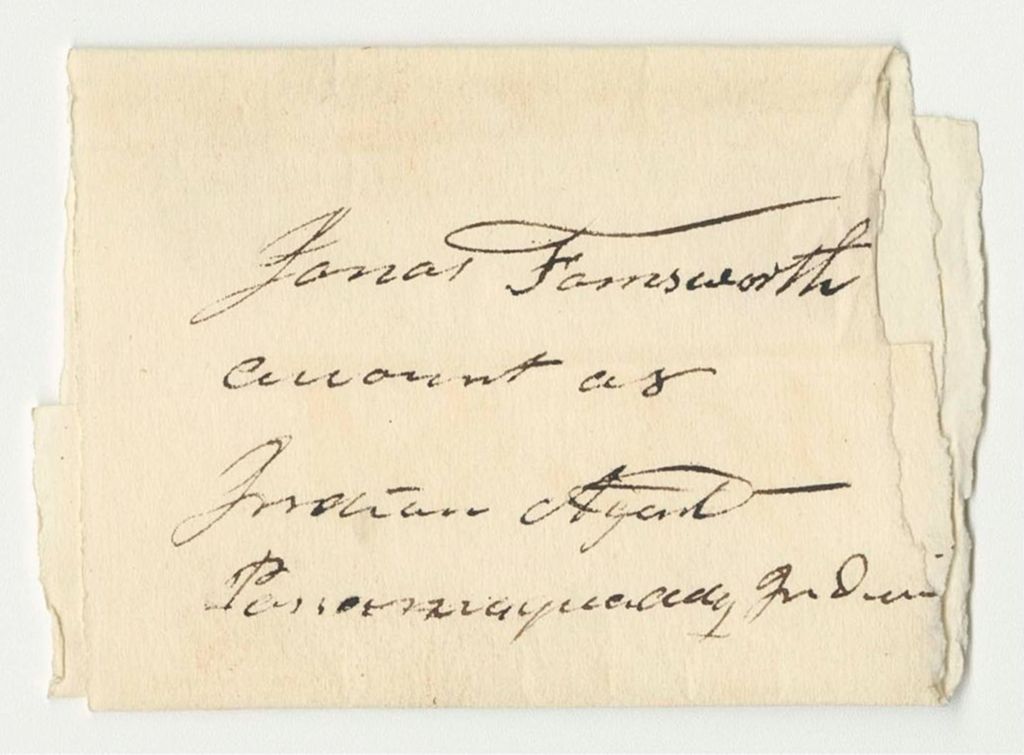 Jonas Farnsworth
account as
Indian Agent
Passamaquaddy Indian